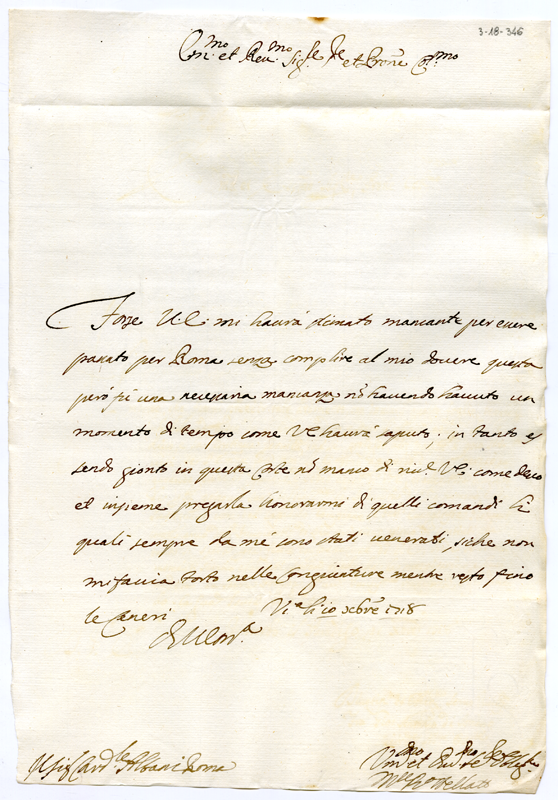 3-18-346
Em.mo et Rev.mo Sig.re et Prone Col.mo
Forse V.E. mi havrà stimato mancante per essere
passato per Roma senza complire al mio dovere questa
però fù una necessaria mancanza nõ havendo havuto un
momento di tempo come VE havrà saputo; in tanto es
sendo gionto in questa Corte nõ manco di riv.e VE come devo
et insieme pregarla honorarmi di quelli comandi li
quali sempre da mé sono stati venerati, siche non
mi faccia torto nelle congiunture mentre resto fino
le Ceneri
Vi.a li 10 xbre 1718
Di V.E.
Sig.r Card.le Albani Roma